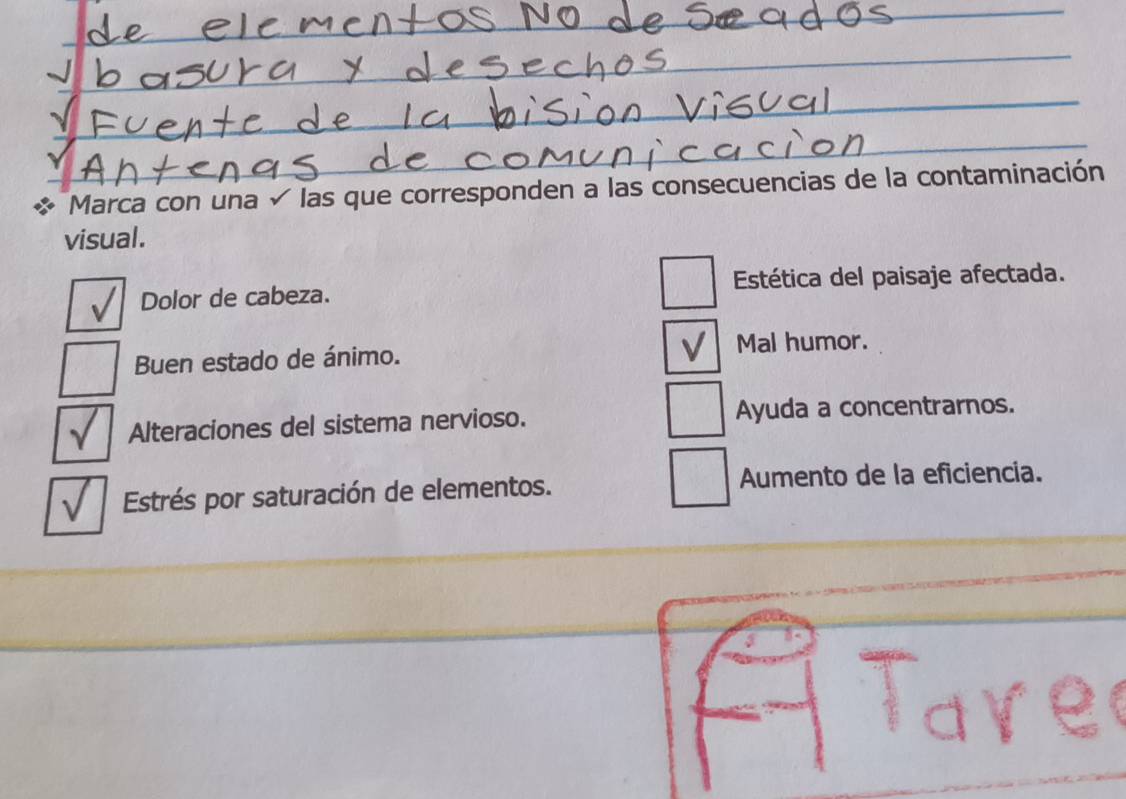 de elementos No deseados
√ basura y desechos
√ Fuente de la bision visual
√ Antenas de comunicacion
❖ Marca con una ✓ las que corresponden a las consecuencias de la contaminación
visual.
√ Dolor de cabeza.
Estética del paisaje afectada.
Buen estado de ánimo.
√ Mal humor.
√ Alteraciones del sistema nervioso.
Ayuda a concentrarnos.
√ Estrés por saturación de elementos.
Aumento de la eficiencia.
A Tarea